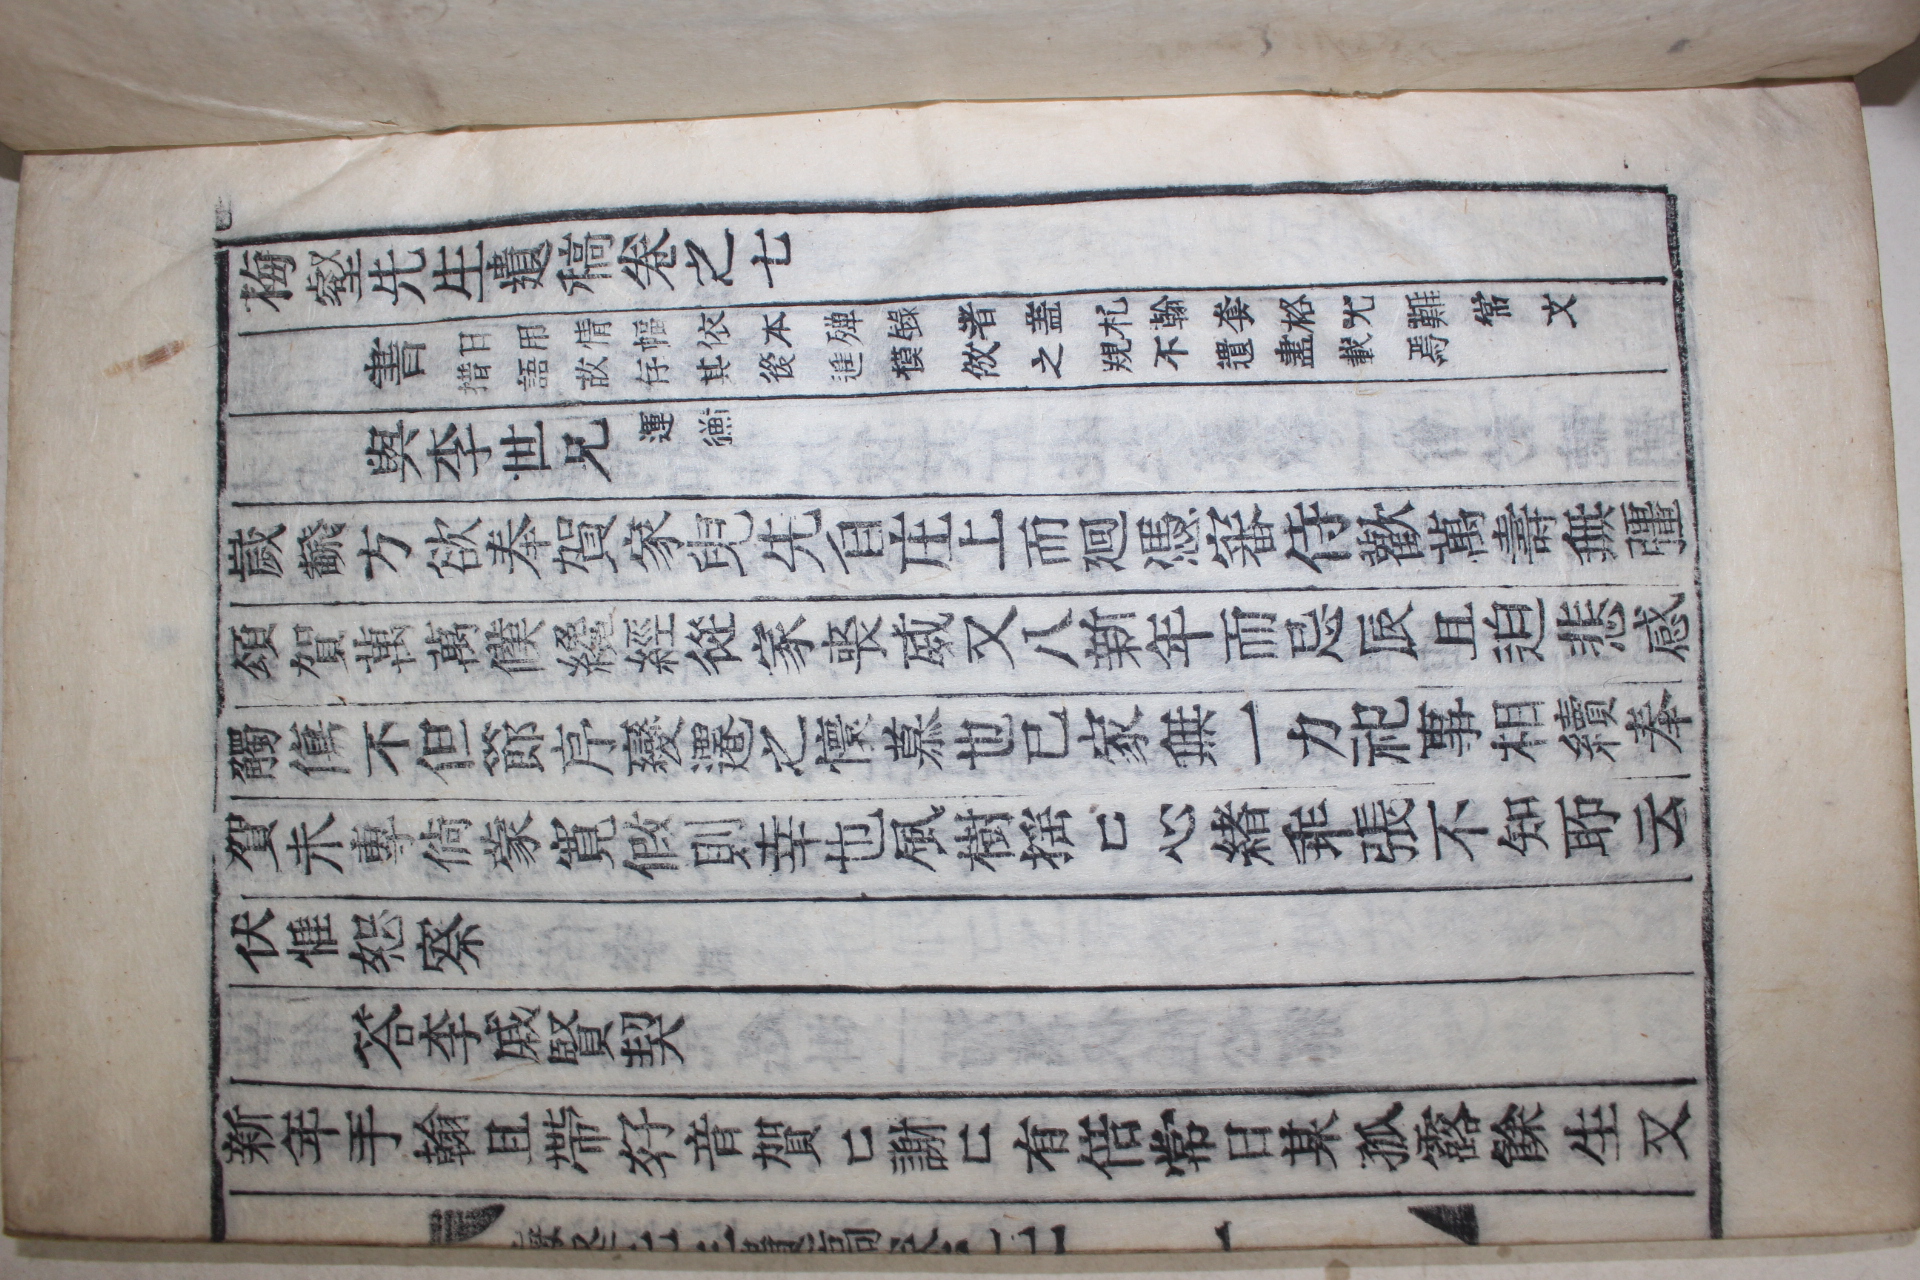 梅壑先生遺稿卷之七
書
日用情幅依本殫錄者盖札翰套格尤難常文
措語故存其後進模倣之規不遺盡載焉
與李世兄
運衡
歲籥方欲奉賀家兒先自庄上而廻憑審侍歡萬壽無彊
頌賀萬萬僕纔經從家喪威又八新年而忌辰且迫悲感
觸傷不但節序變遷之懷慕也已家無一力祀事相續奉
賀未專倘蒙寬假則幸也風樹搖匕心緖乖張不知耶云
伏惟恕察
答李戚賢契
新年手翰且帶好音賀匕謝匕有倍常日某孤露餘生又